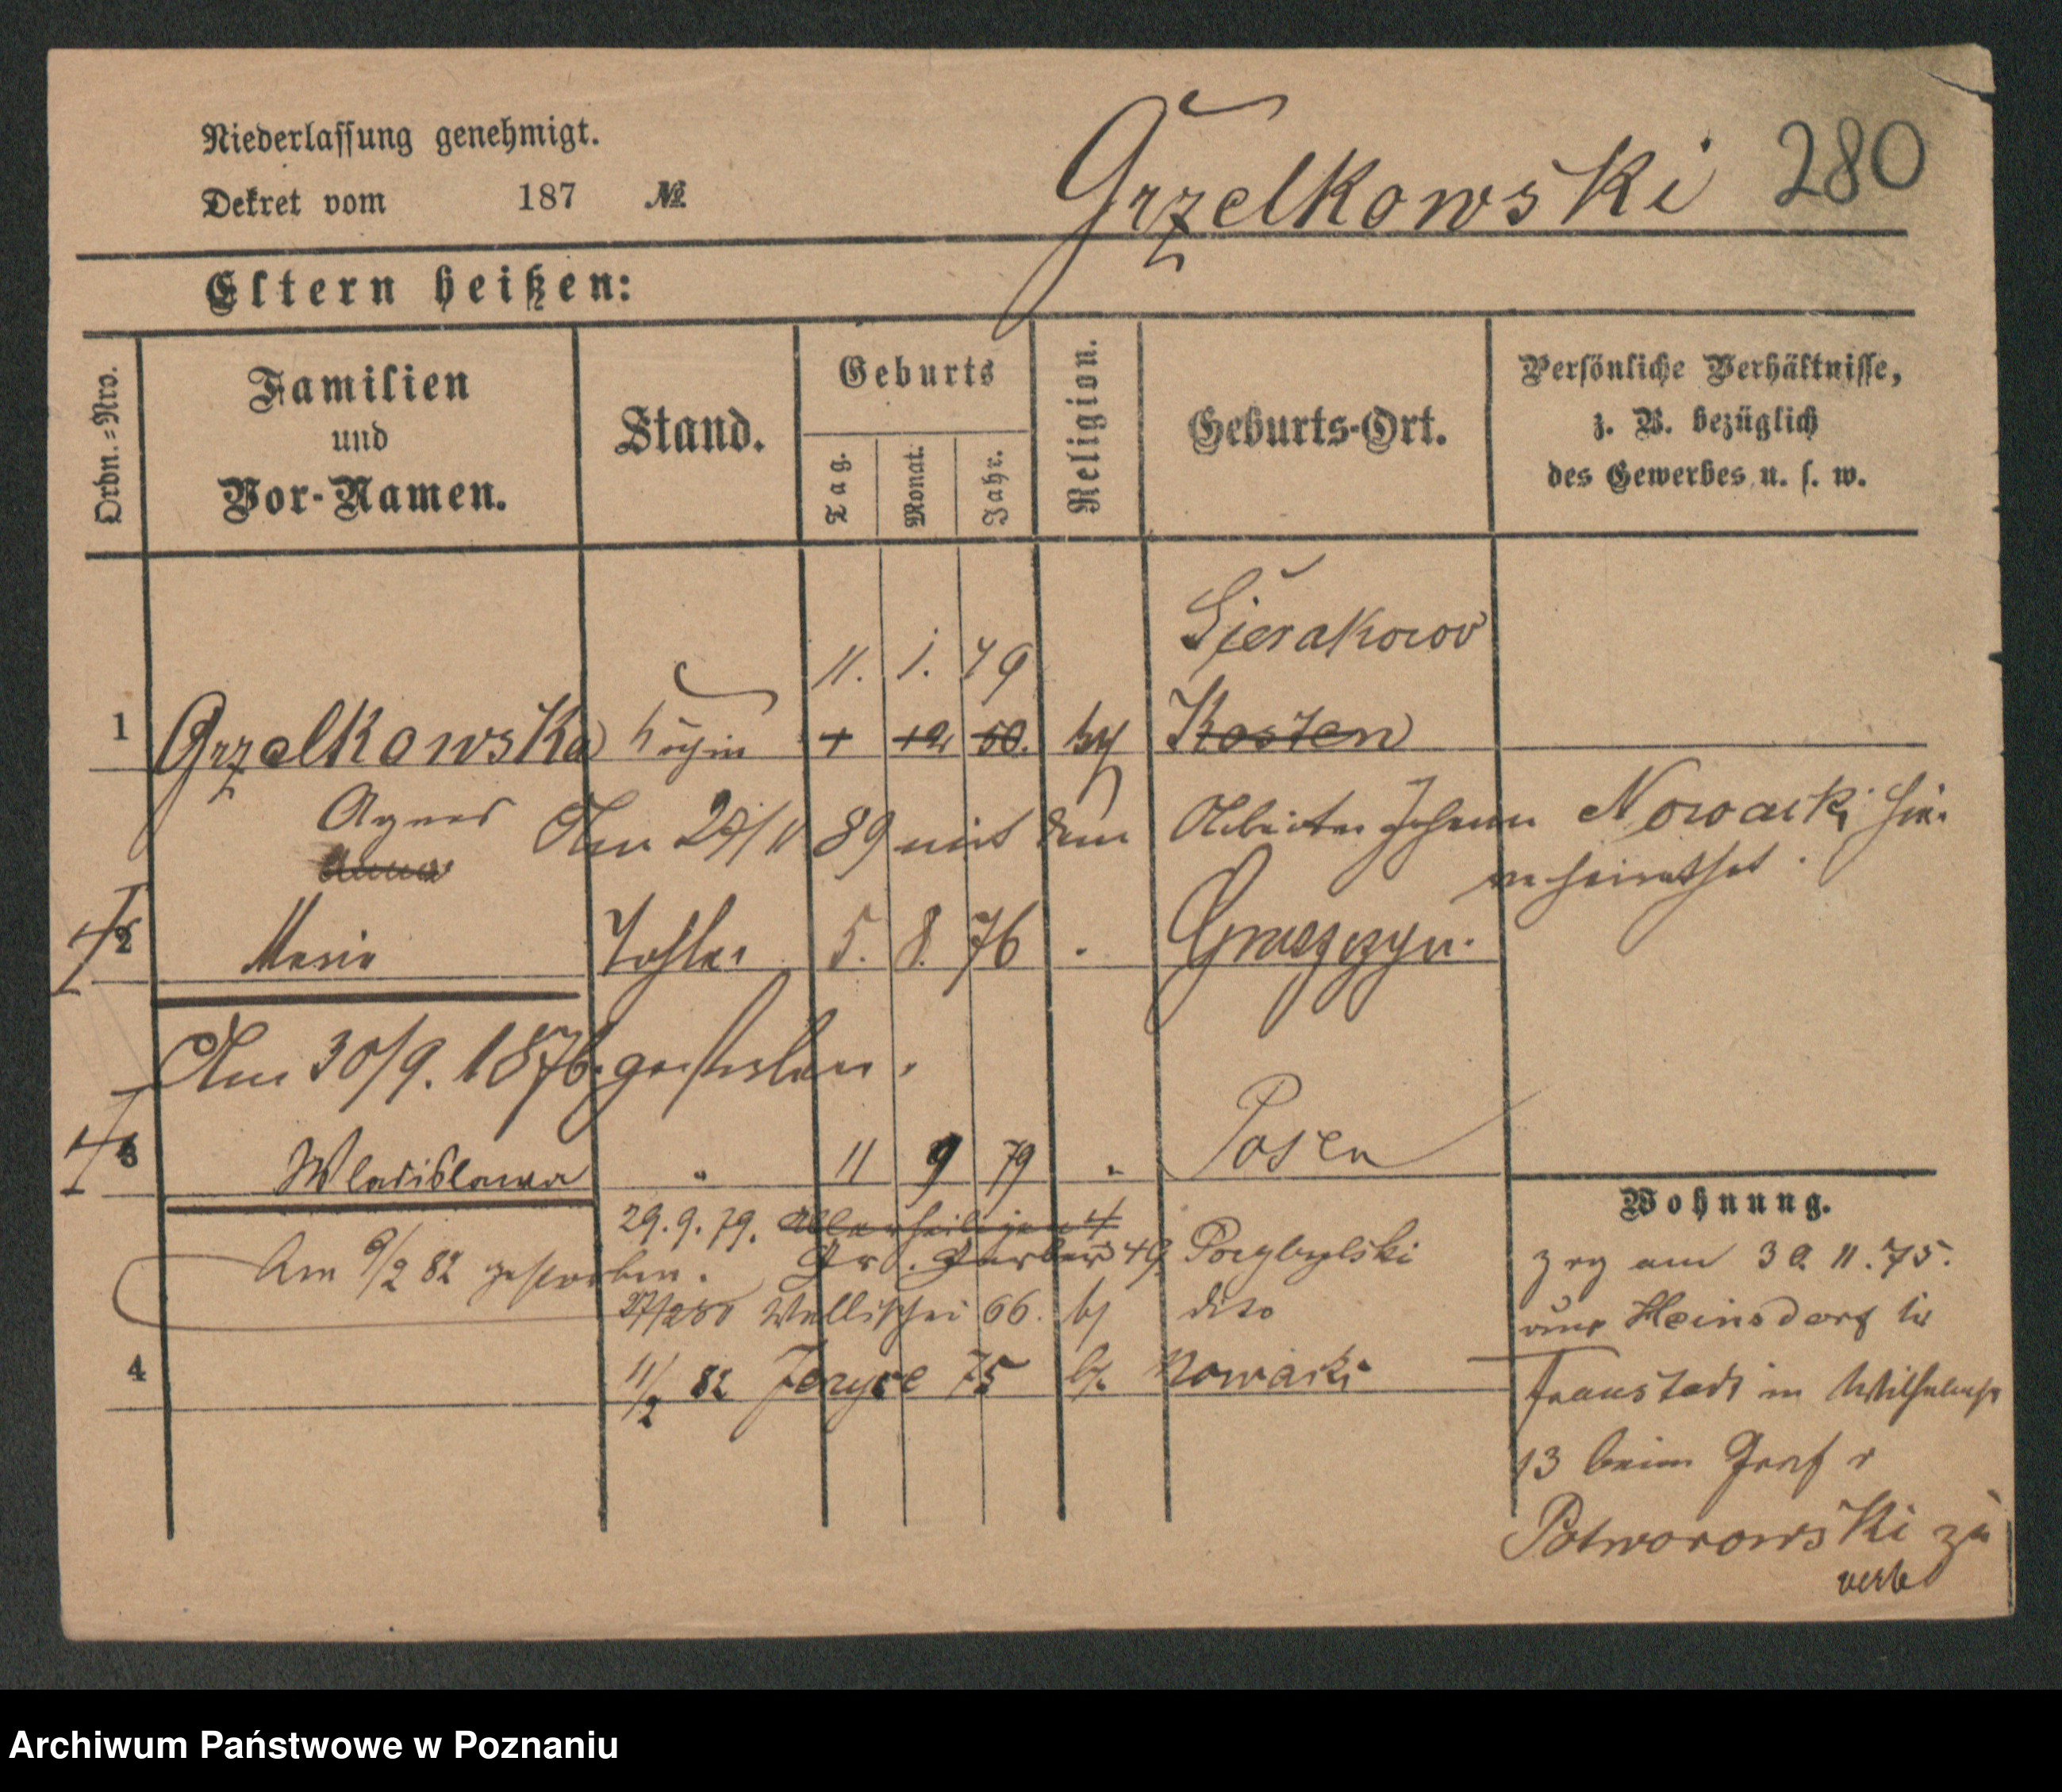 Niederlassung genehmigt.
Dekret vom 187 №
Grzelkowski 280
Eltern heißen:
Ordn.=Nro.
Familien
und
Vor-Namen.
Stand.
Geburts
Tag.
Monat.
Jahr.
Religion.
Geburts-Ort.
Persönliche Verhältnisse,
z. B. bezüglich
des Gewerbes u. s. w.
11. 1. 49
Sierakowo
1 Grzelkowska Köchin 1 12 50. Kosten
Agnes
Anna
Am 27/11 89 mit dem Arbeiter Johann Nowacki hier
verheirathet.
2 Marie Tochter 5. 8. 76
Am 30/9. 1876 gestorben.
3 Wladislawa " 11 9 79 " Posen
29.9.79. Allerheiligen 4
Am 9/2 82 gestorben.
Gr. Gerber 49 Przybylski
Wallischei 66. bj dito
4
11/2 82 Jerzyce 75 bj. Nowacki
Wohnung.
zrg am 30.11.75.
aus Heinsdorf
Fraustadt in Wilhelmstr
13 beim Graf v
Potworowski zu
Archiwum Państwowe w Poznaniu